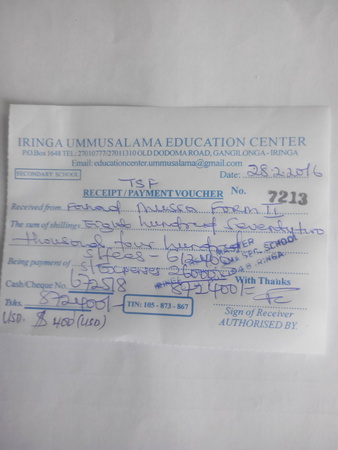 IRINGA UMMUSALAMA EDUCATION CENTER
P.O.Box 1648 TEL: 27010777/27011310 OLD DODOMA ROAD, GANGILONGA - IRINGA
Email: educationcenter.ummusalama@gmail.com
SECONDARY SCHOOL Date: 28.2.2016
TSF
RECEIPT/PAYMENT VOUCHER No. 7213
Received from Fahad Mussa Form II
The sum of shillings Eight hundred seventy two
thousand four hundred
S/fees - 612400
Being payment of S/Expenses 260000
MASTER
SEC SCHOOL
IRINGA
With Thanks
Cash/Cheque No. 67258 872400/=
Tshs. 872400/- TIN: 105 - 873 - 867
Sign of Receiver
USD - $ 400 (USD) AUTHORISED BY.